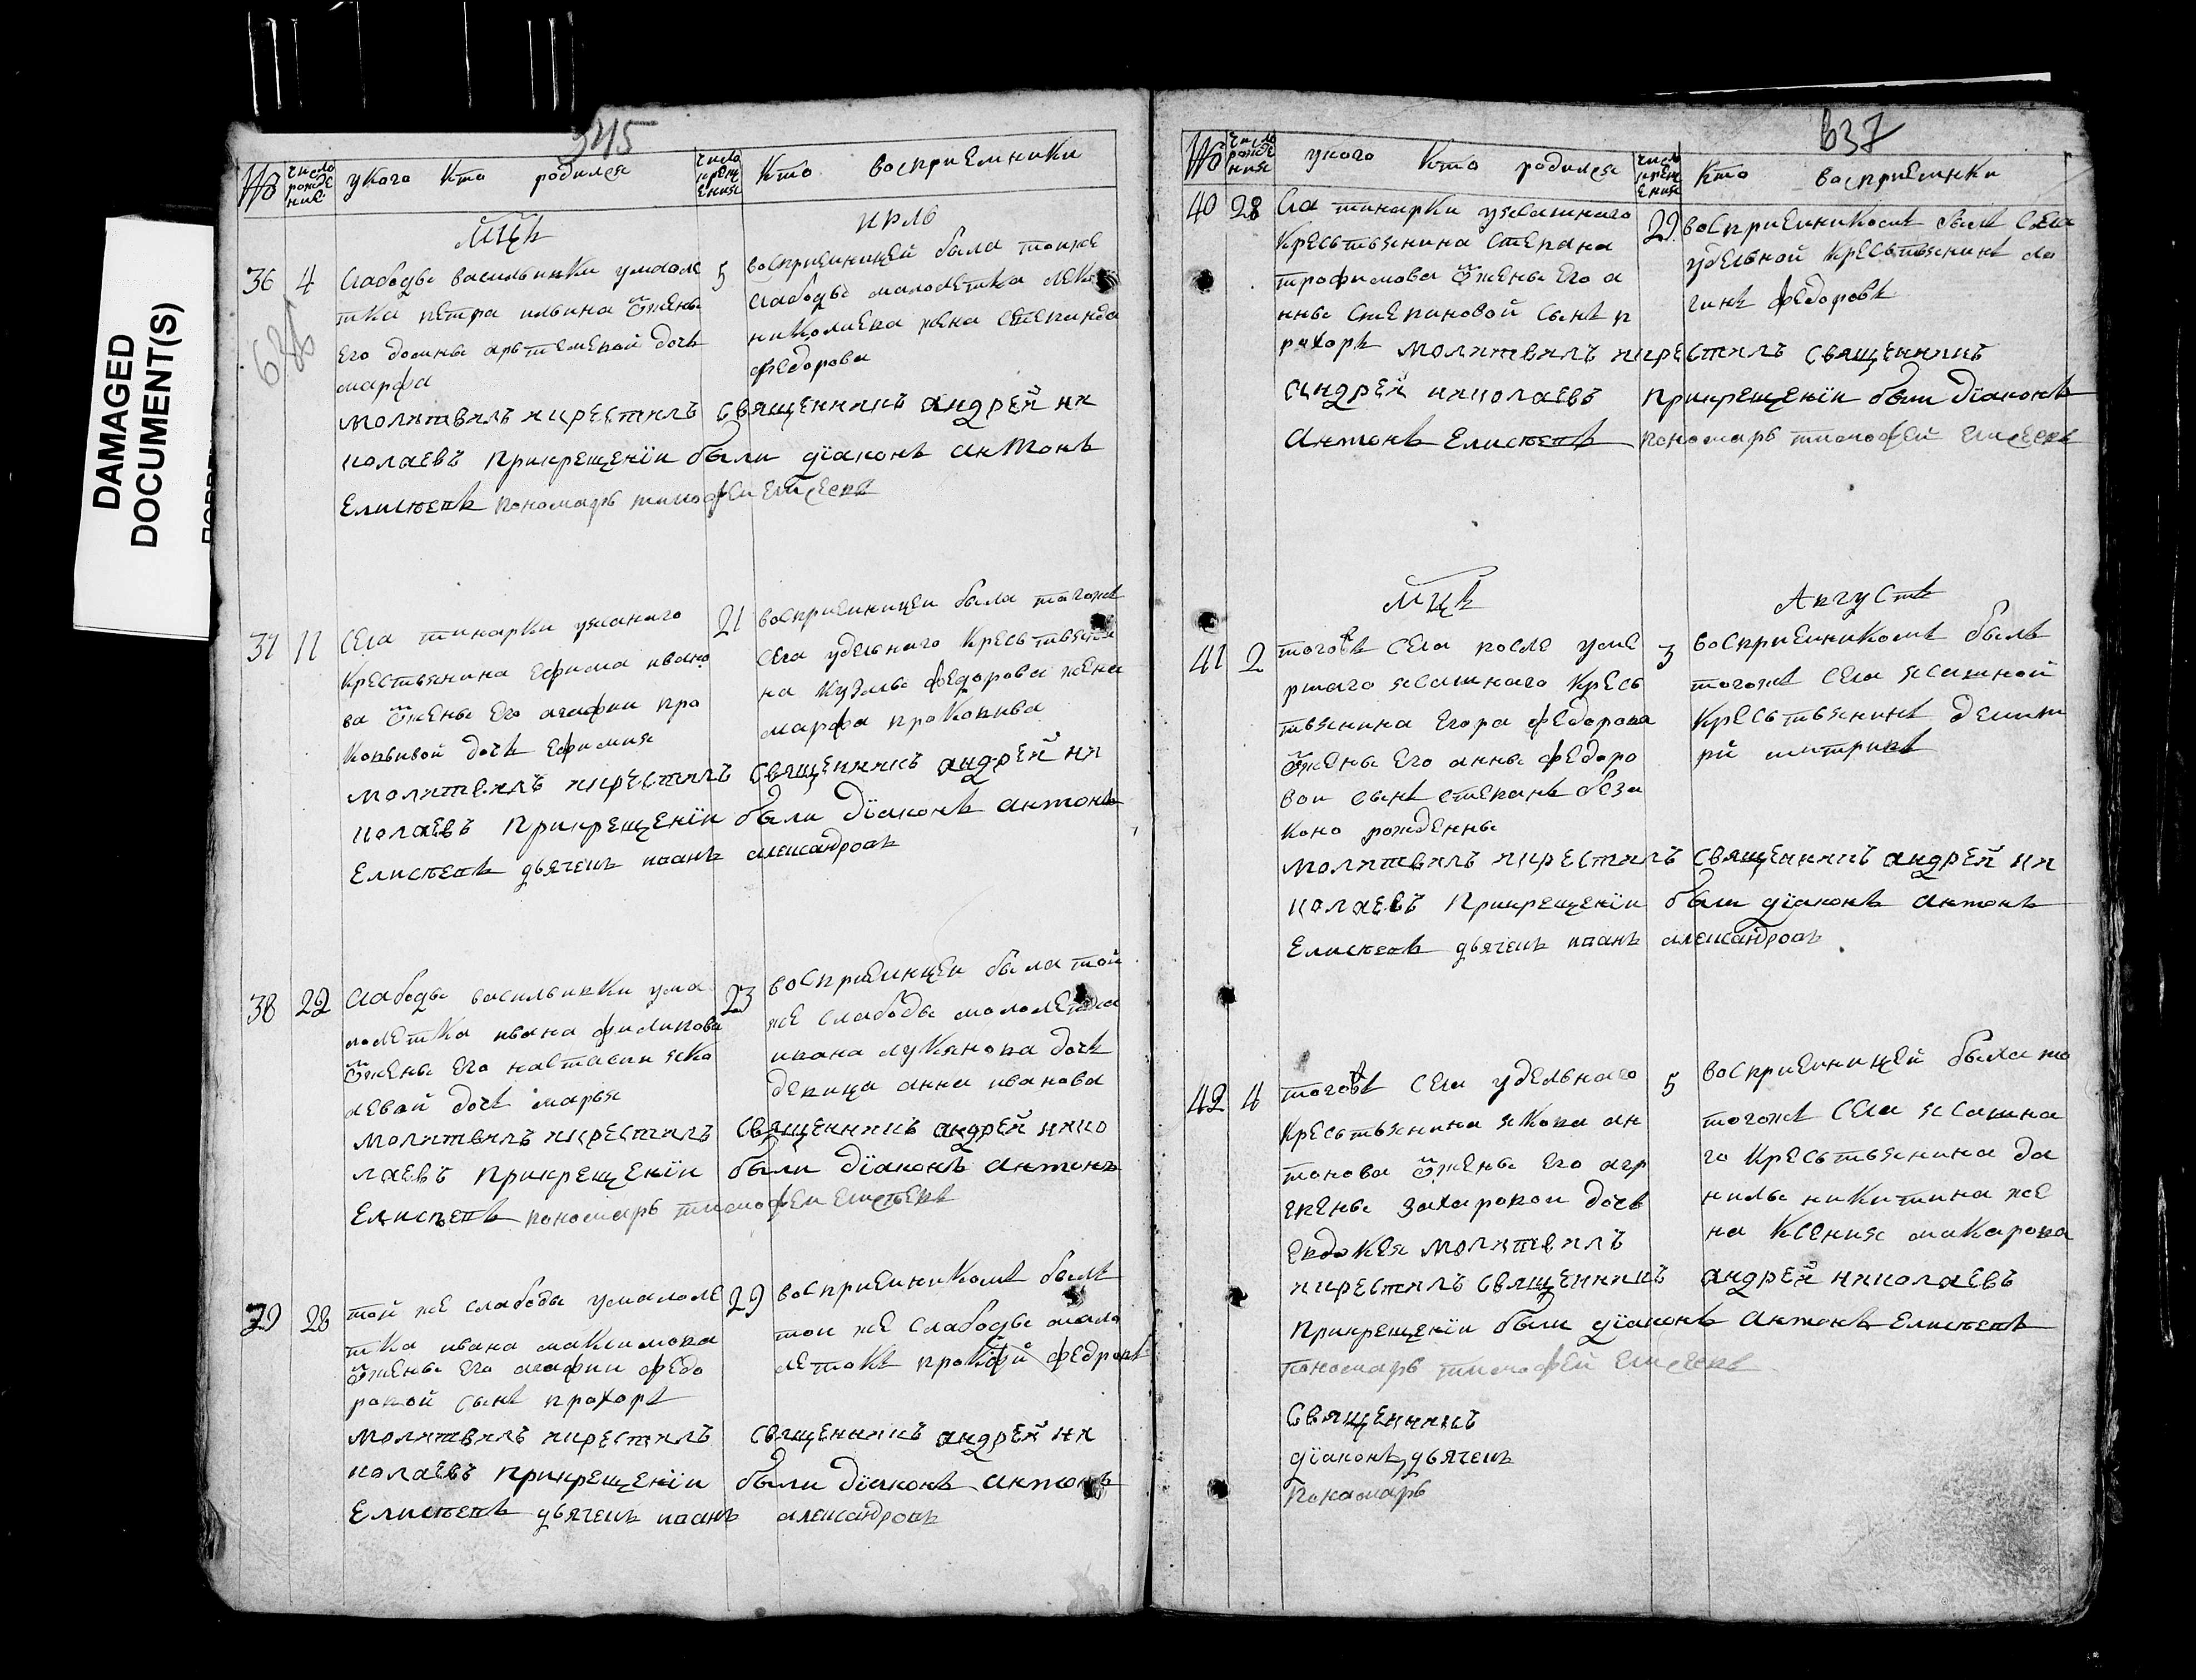 DAMAGED
DOCUMENT(S)
345
№ число рожде ние укого Кто родился число крещ ения Кто восприемники
Мцъ июль
36 4 Слабоды василъивки умалоле
тка петра ильина ѿжены
его домны артемевой дочь
марфа
5 восприемницей была тоиже
слабоды малолетка
жена степанида
федорова
молитвилъ икрестилъ священникъ андрей ни
колаевъ прикрещенїи были дїаконъ антонъ
Елисѣевъ пономарь тимофеи елисеевъ
37 11 Села тинарки уясашнаго
Крестьянина ефима ивано
ва ѿжены его агафии про
копьивой дочь ефимия
21 восприемницеи была тогожъ
села удельнаго кресьтьяни
на кузмы федорова жена
марфа прокопива
молитвилъ икрестилъ священникъ андрей ни
колаевъ прикрещенїи были дїаконъ антонъ
Елисѣевъ дьячекъ иванъ александровъ
38 22 Слабоды василъивки ума
лолетка ивана филипова
ѿжены его настасии яко
левай дочь марья
23 восприемницеи была той
же слабоды малолетка
ивана лукянова дочь
девица анна иванова
молитвилъ икрестилъ священникъ андрей нико
лаевъ прикрещенїи были дїаконъ антонъ
Елисѣевъ пономарь тимофеи елисѣевъ
39 28 той же слабоды умалоле
тка ивана максимова
ѿжены его агафии федо
ровой сынъ прохоръ
29 восприемникомъ былъ
тои же слабоды мало
летокъ прокофй федровъ
молитвилъ икрестилъ священникъ андрей ни
колаевъ прикрещенїи были дїаконъ антонъ
Елисѣевъ дьячекъ иванъ александровъ
637
№ число рожде ния укого Кто родился число крещ ения Кто восприемники
40 28 Села тинарки уясашнаго
кресьтьянина степана
трофимова ѿжены его а
нны степановой сынъ п
рахоръ
29 восприемникомъ былъ села
удельной кресьтьянинъ ло
гинъ федоровъ
молитвилъ икрестилъ священникъ
андрей николаевъ прикрещенїи были дїаконъ
Антонъ Елисѣевъ пономарь тимофей елисеевъ
Мцъ Августъ
41 2 тогожъ села после уме
ршаго ясашнаго кресь
тьянина егора федорова
ѿжены его анны федоро
вои сынъ степанъ беза
коно рожденны
3 восприемникомъ былъ
тогожъ села ясашной
кресьтьянинъ дмит
рй митривъ
молитвилъ икрестилъ священникъ андрей ни
колаевъ прикрещенїи были дїаконъ антонъ
Елисѣевъ дьячекъ иванъ александровъ
42 4 тогожъ села удельнаго
кресьтьянина якова ан
тонова ѿжены его агр
екены захаровои дочь
евдокея молитвилъ
5 восприемницей была то
гожъ села ясашна
го кресьтьянина да
нилы никитина же
на ксения макарова
икрестилъ священникъ андрей николаевъ
прикрещенїи были дїаконъ антонъ Елисѣевъ
пономарь тимофей елисеевъ
Священникъ
дїаконъ дьячекъ
Понамарь